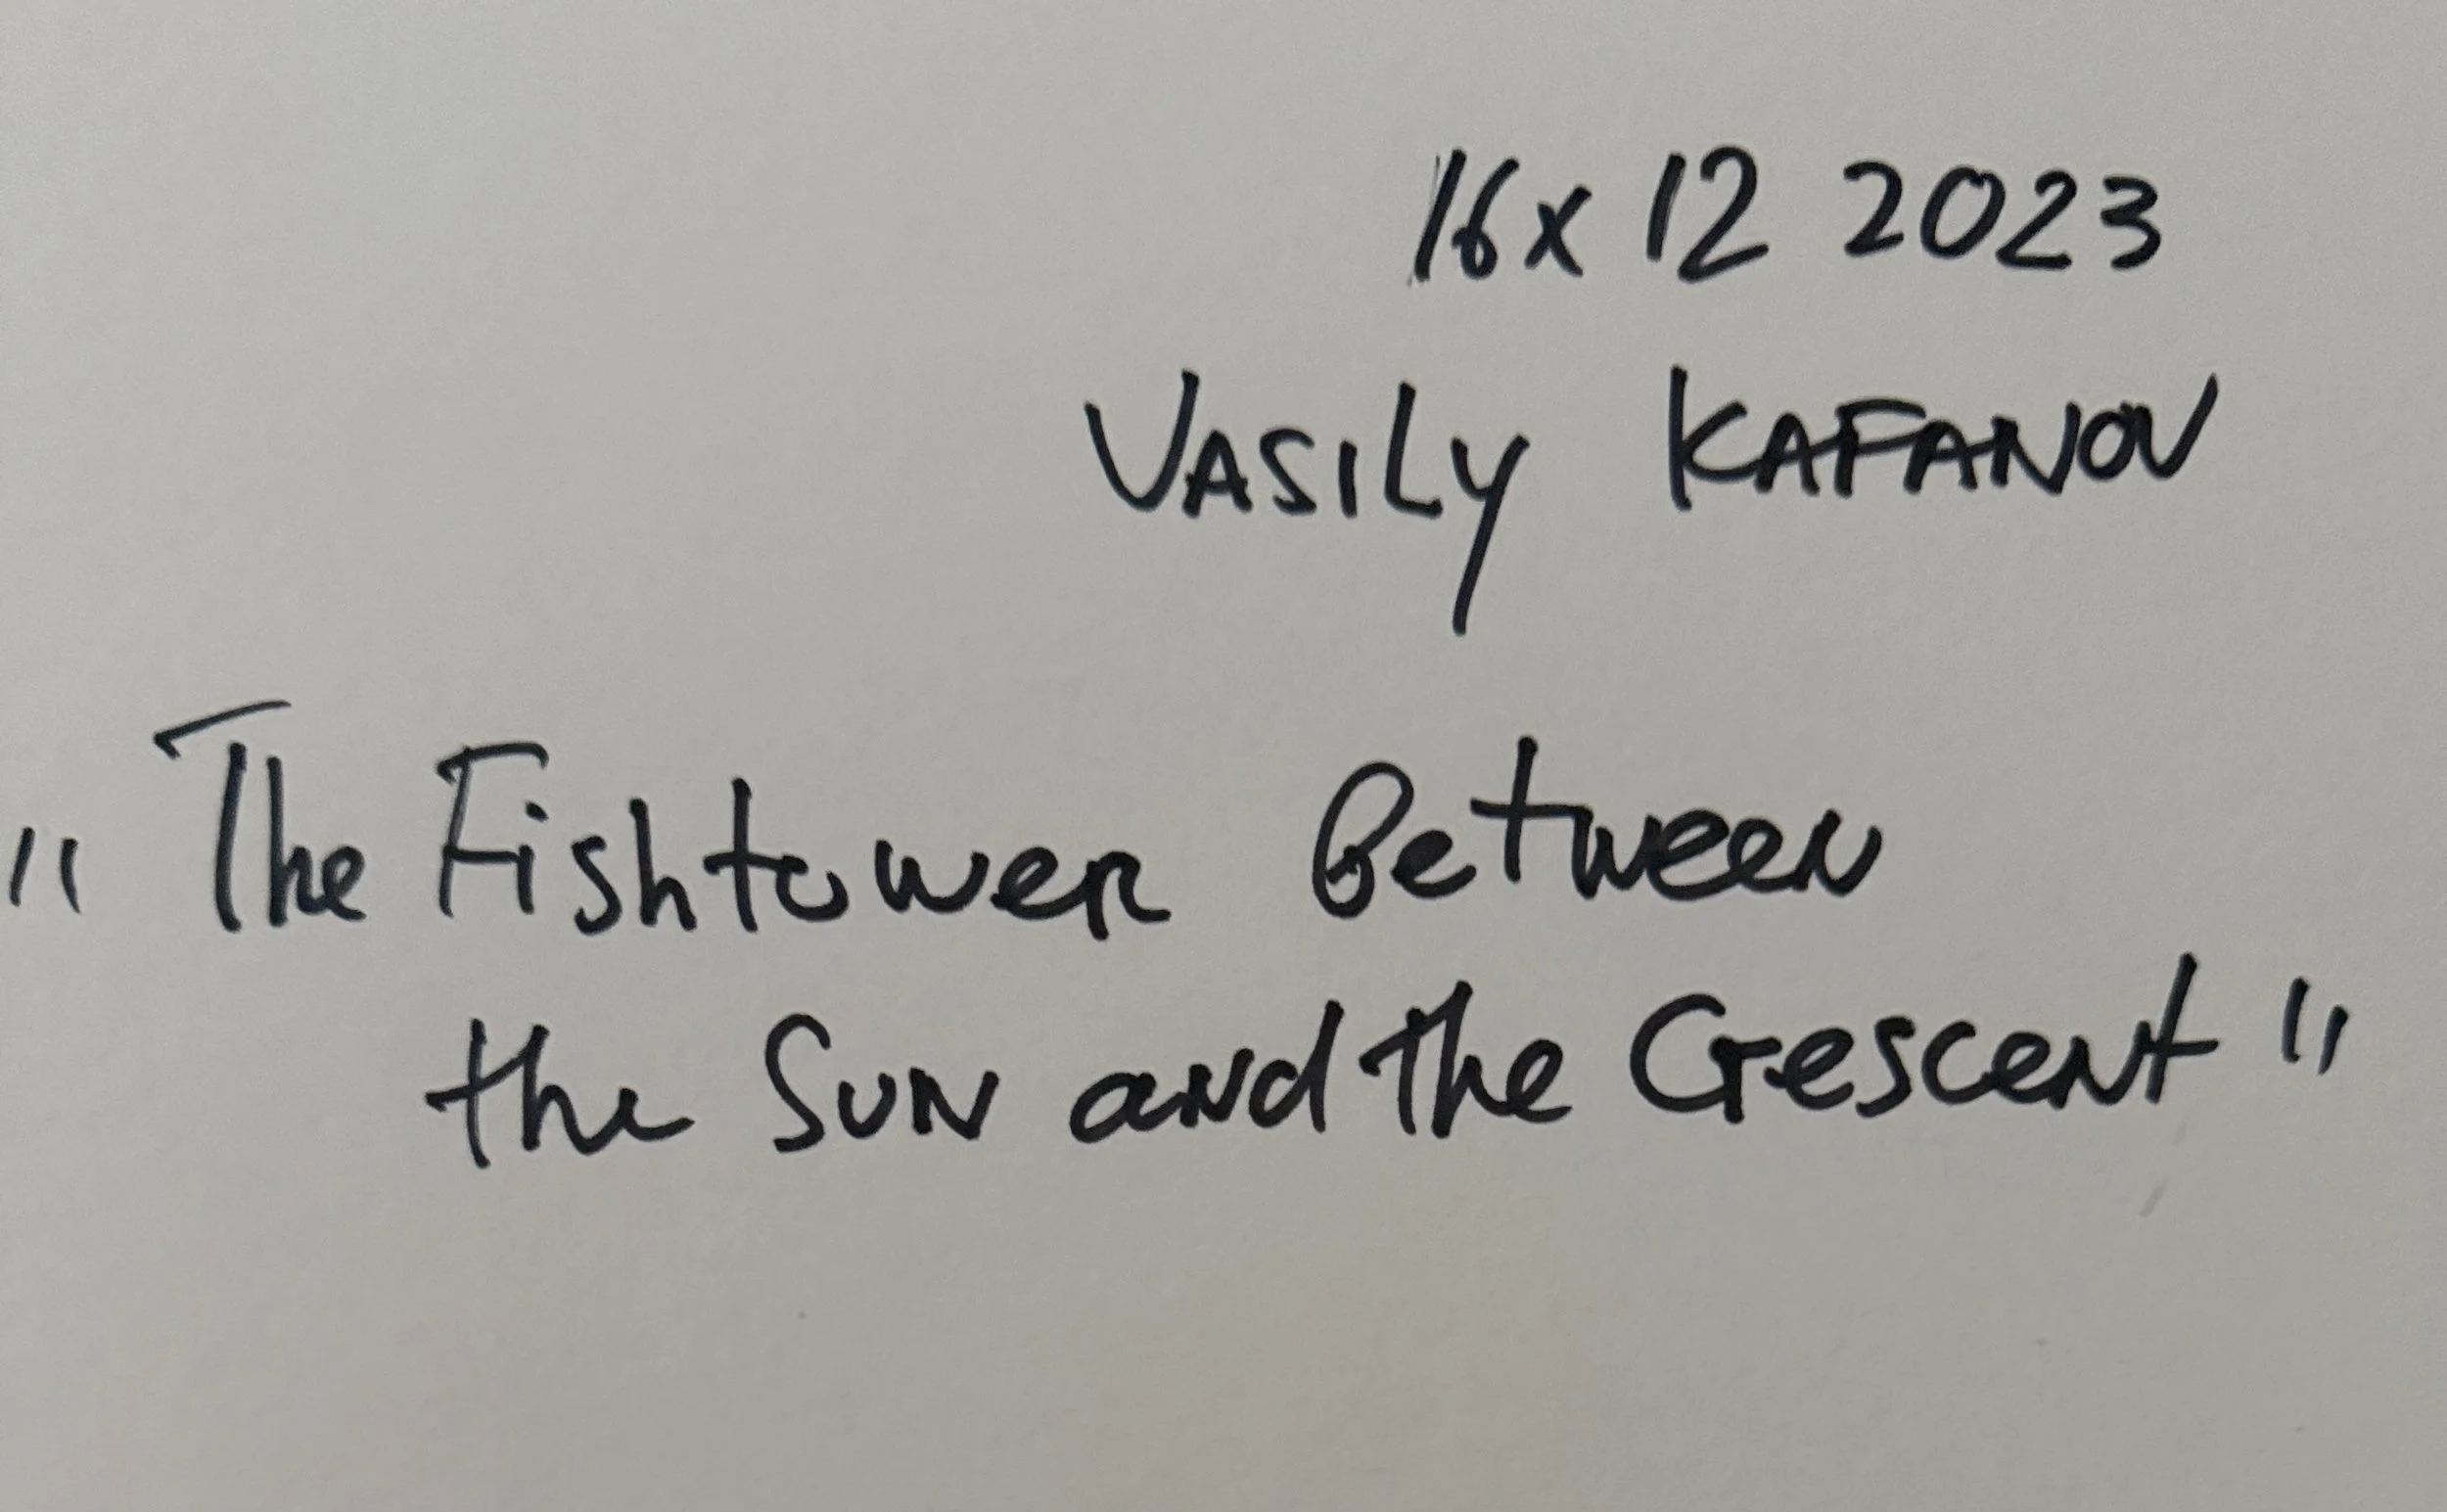 16x 12 2023
VASILY KAFANOV
"The Fishtower Between
the Sun and the Crescent"